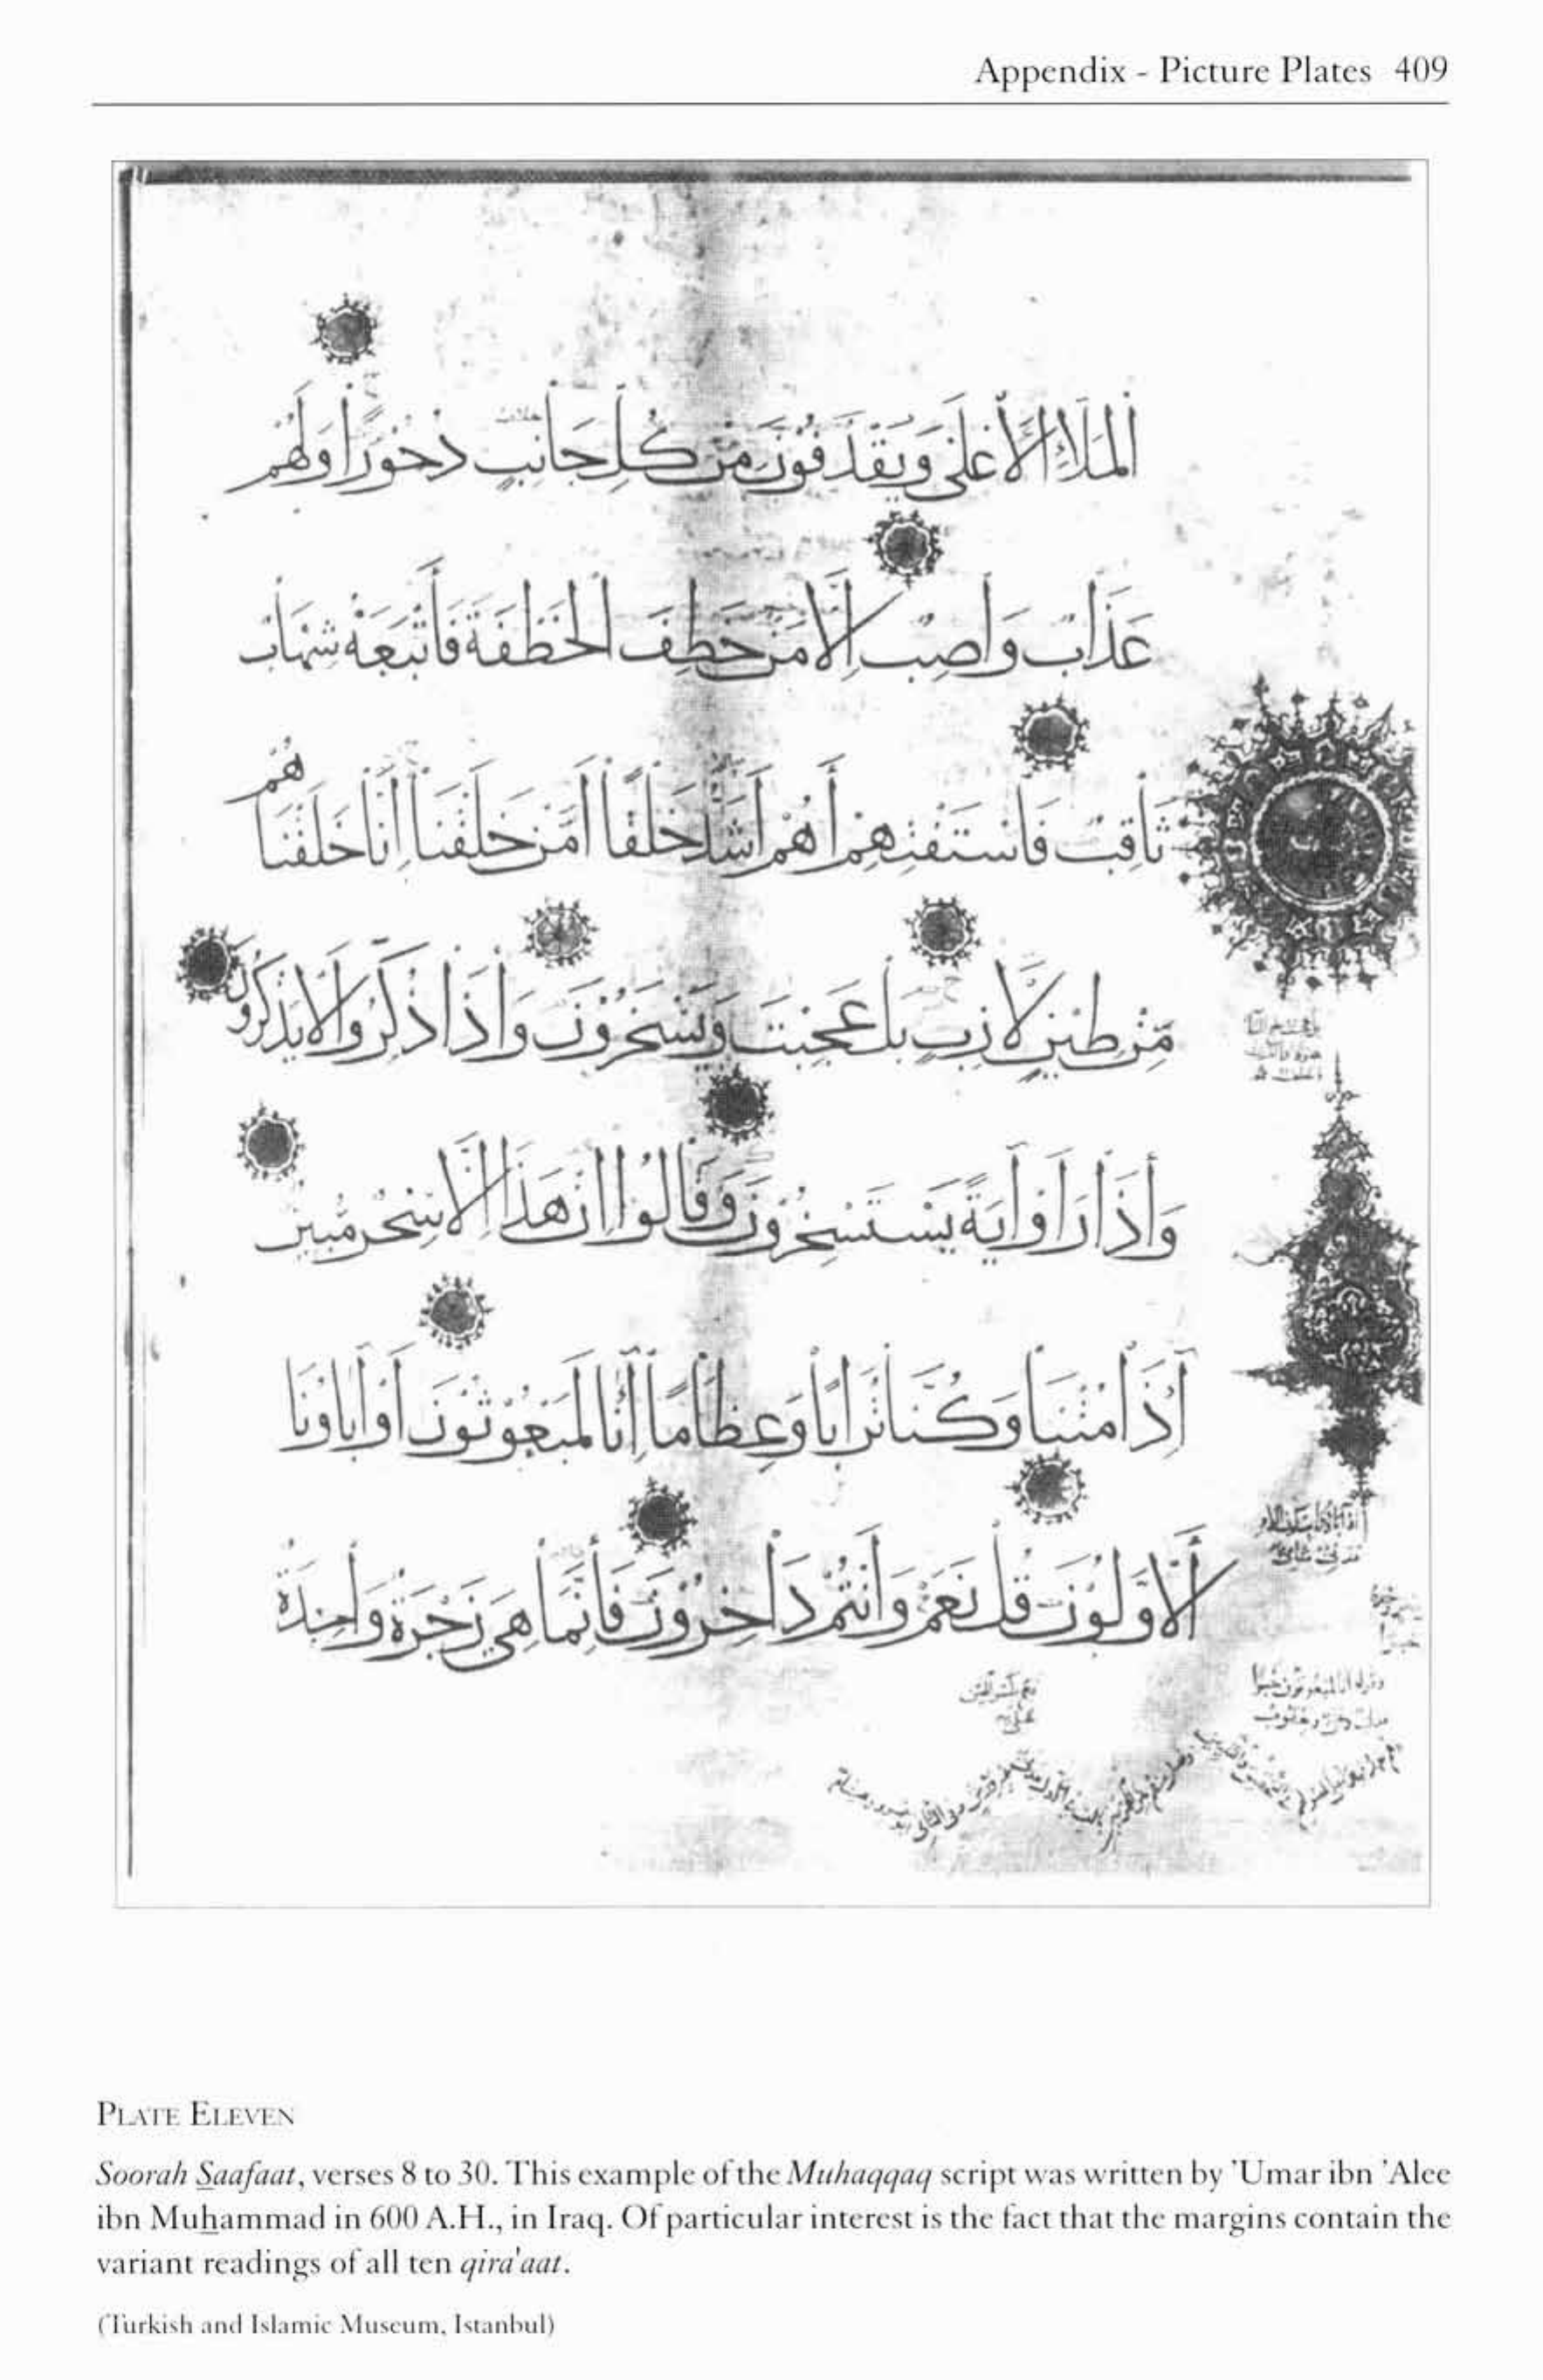 Appendix - Picture Plates 409
الملا الاعلى ويقذفون من كل جانب دحورا ولهم
عذاب واصب الا من خطف الخطفة فاتبعه شهاب
ثاقب فاستفتهم اهم اشد خلقا ام من خلقنا انا خلقناهم
من طين لازب بل عجبت ويسخرون واذا ذكروا لا يذكرون
واذا راوا اية يستسخرون وقالوا ان هذا الا سحر مبين
اذا متنا وكنا ترابا وعظاما انا لمبعوثون اواباونا
الاولون قل نعم وانتم داخرون فانما هي زجرة واحدة
PLATE ELEVEN
Soorah Saafaat, verses 8 to 30. This example of the Muhaqqaq script was written by 'Umar ibn 'Alee
ibn Muhammad in 600 A.H., in Iraq. Of particular interest is the fact that the margins contain the
variant readings of all ten qira'aat.
(Turkish and Islamic Museum, Istanbul)